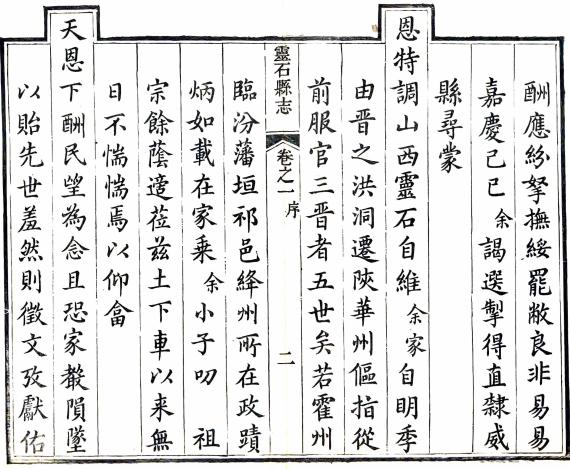 酬應紛拏撫綏罷敝良非易易
嘉慶己巳余謁選掣得直隸威
縣尋蒙
恩特調山西靈石自維余家自明季
由晋之洪洞遷陝華州傴指從
前服官三晋者五世矣若霍州
靈石縣志 卷之一 序 二
臨汾藩垣祁邑絳州所在政蹟
炳如載在家乘余小子叨 祖
宗餘蔭適莅茲土下車以来無
日不惴惴焉以仰畣
天恩下酬民望為念且恐家嚴隕墜
以貽先世羞然則徵文攷獻佑